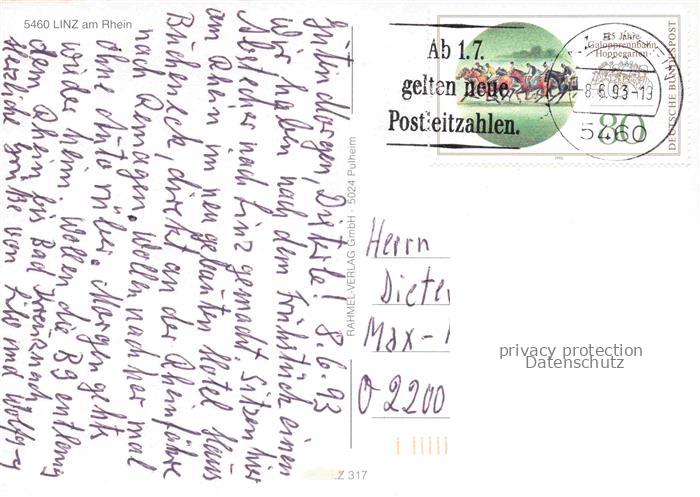 5460 LINZ am Rhein
Guten Morgen, Dieterle! 8.6.93
Wir haben nach dem Frühstück einen
Abstecher nach Linz gemacht. Sitzen hier
am Rhein im neu gebauten Hotel Haus
Bucheneck, direkt an der Rheinfähre
nach Remagen. Wollen nachher mal
ohne Auto rüber. Morgen gehts
wieder heim. Wollen die B9 entlang
dem Rhein bis Bad Kreuznach
Herzliche Grüße von Lilo und Wolfg
RAHMEL-VERLAG GmbH · 5024 Pulheim
Z 317
Ab 1.7.
gelten neue
Postleitzahlen.
125 Jahre
Galopprennbahn
Hoppegarten
80
DEUTSCHE BUNDESPOST
8.6.93-19
5460
Herrn
Dieter
Max-
O 2200
privacy protection
Datenschutz